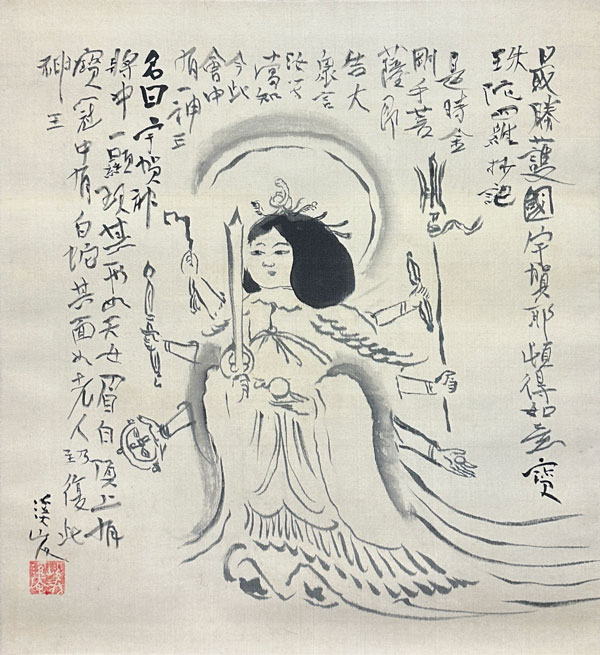 最勝護國宇賀耶頓得如意寶
珠陀羅
是時金
剛手菩
薩即
告大
衆言
汝等
當知
今此
會中
有一神王
名曰宇賀
將其形如天女眉白頂上有
寶冠中有白蛇其面如老人復此
神王